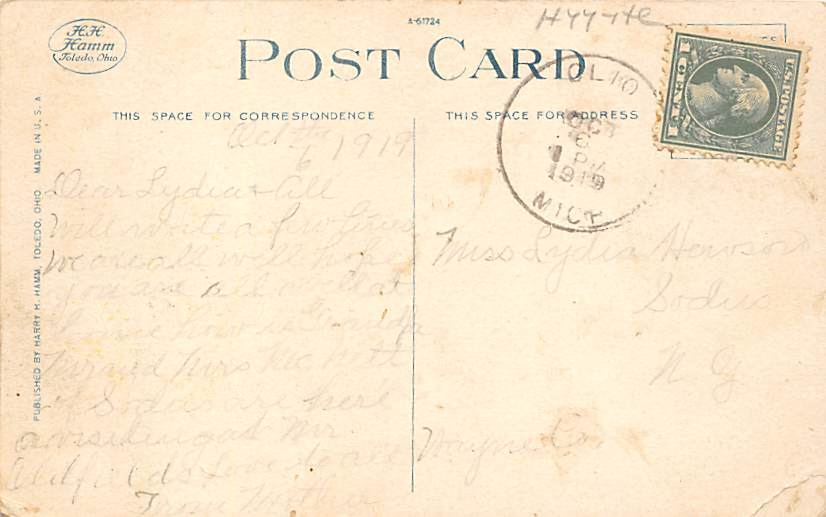 H.H.
Hamm
Toledo, Ohio
A-61724
POST CARD
THIS SPACE FOR CORRESPONDENCE
THIS SPACE FOR ADDRESS
PUBLISHED BY HARRY H. HAMM, TOLEDO, OHIO MADE IN U.S.A
CLIO
OCT
6
PM
1919
MICH
U.S. POSTAGE
Oct 6 1919
Dear Lydia & All
Will write a few lines
we are all well hope
you are all well at
home how is Grandpa
and Mrs
of Sodus are here
a visiting at Mr
Love to all
From Mother
Miss Lydia
Sodus
N Y
Wayne Co